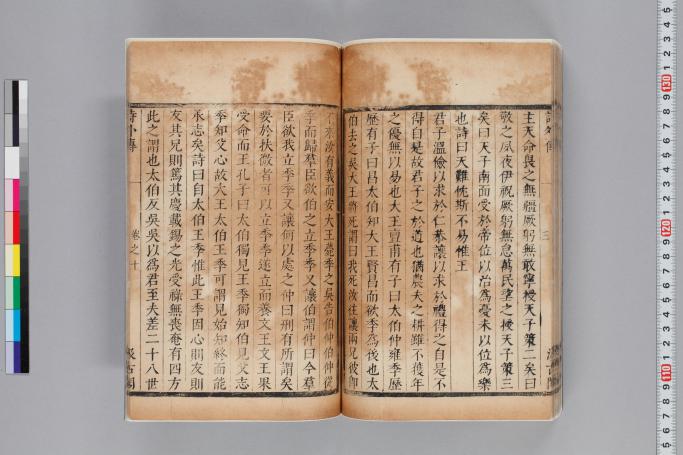 主天命畏之無疆厥躬無敢寧授天子策二矣曰
敬之夙夜伊祝厥躬無怠萬民望之授天子策三
矣曰天子南面受於帝位以治為憂未以位為樂
也詩曰天難忱斯不易惟王
君子溫儉以求於仁恭讓以求於禮得之自是不
得自是故君子之於道也猶農夫之耕雖不獲年
之優無以易也大王亶甫有子曰太伯仲雍季歷
歷有子曰昌太伯知大王賢昌而欲季為後也太
伯去之吳大王將死謂曰我死汝往讓兩兄彼即
不來汝有義而安大王薨季之吳告伯仲伯仲從
季而歸羣臣欲伯之立季季又讓伯謂仲曰今羣
臣欲我立季季又讓何以處之仲曰刑有所謂矣
要於扶微者可以立季季遂立而養文王文王果
受命而王孔子曰太伯獨見王季獨知伯見父志
季知父心故大王太伯王季可謂見始知終而能
承志矣詩曰自太伯王季惟此王季因心則友則
友其兄則篤其慶載錫之光受祿無喪奄有四方
此之謂也太伯反吳吳以為君至夫差二十八世
詩外傳
卷之十
汲古閣